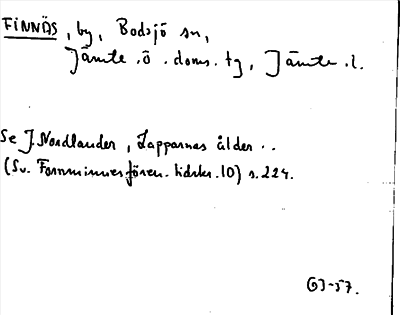 FINNÄS, by, Bodsjö sn,
Jämte. ö. doms. tg, Jämte. l.
Se J. Nordlander, Lapparnas ålder..
(Sv. Fornminnesfören. tidskr. 10) s. 224.
GJ-57.